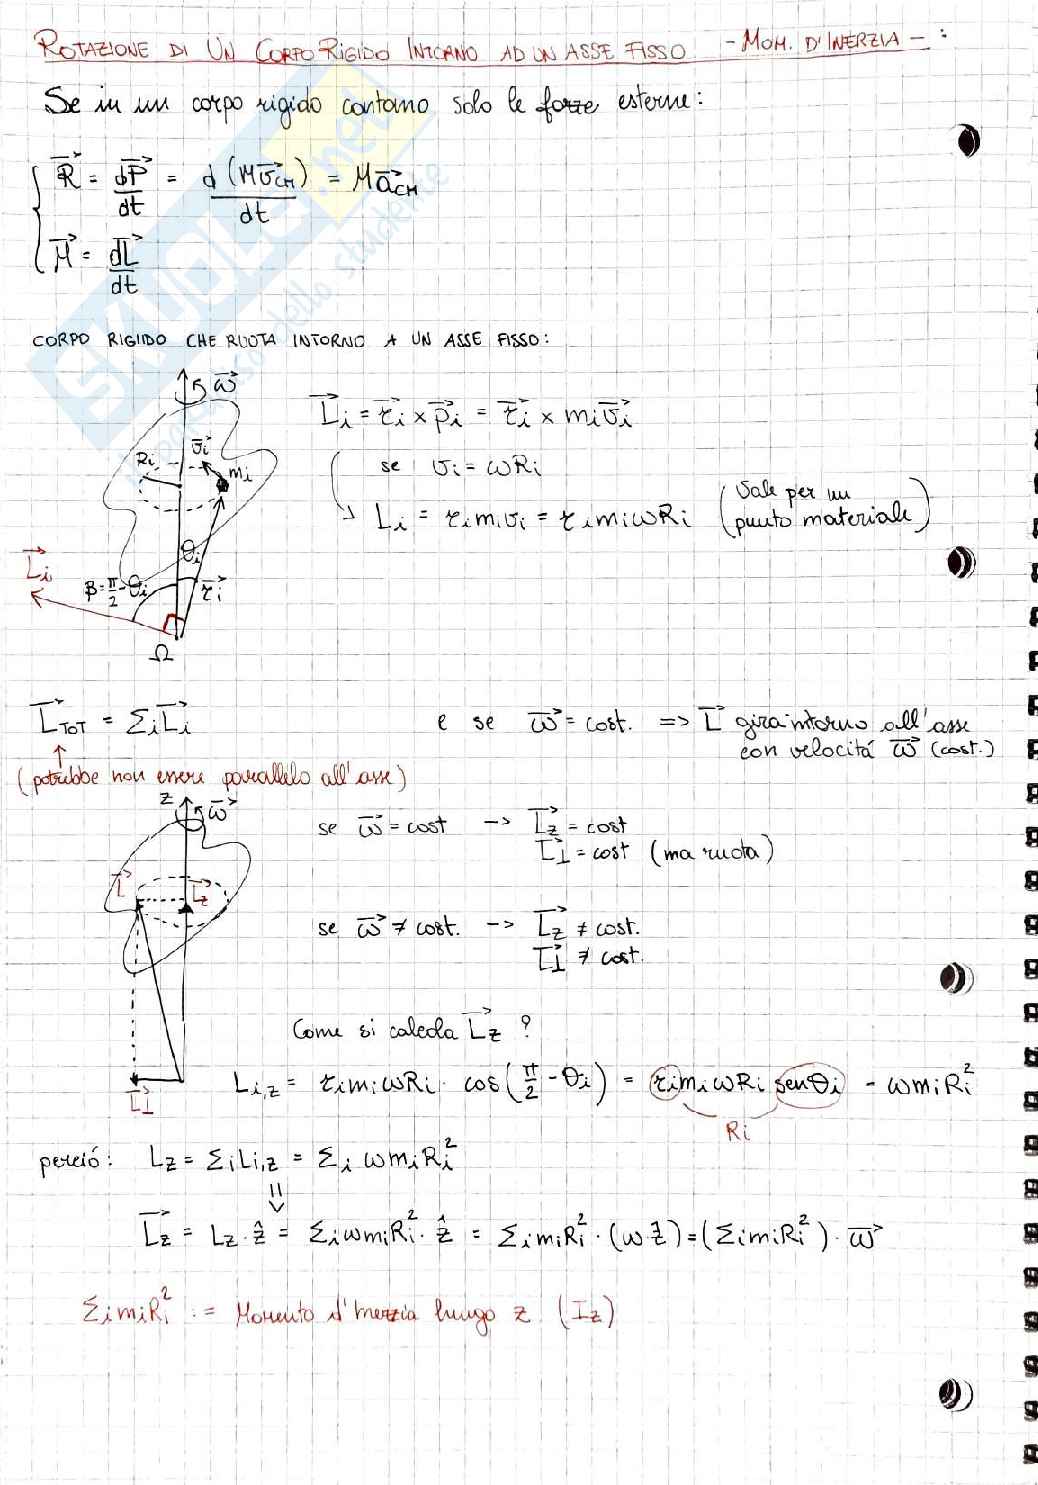 ROTAZIONE DI UN CORPO RIGIDO INTORNO AD UN ASSE FISSO - MOM. D'INERZIA - :
Se in un corpo rigido contano solo le forze esterne:
R⃗ = dP⃗/dt = d(Mv⃗CM)/dt = Ma⃗CM
M⃗ = dL⃗/dt
CORPO RIGIDO CHE RUOTA INTORNO A UN ASSE FISSO:
ω⃗
Ri v⃗i mi
θi
L⃗i β=π/2-θi r⃗i
Ω
L⃗i = r⃗i × p⃗i = r⃗i × miv⃗i
se vi = ωRi
↳ Li = rimivi = rimiωRi (Vale per un punto materiale)
L⃗TOT = ΣiL⃗i e se ω⃗ = cost. => L⃗ gira intorno all'asse
con velocitá ω⃗ (cost.)
(potrebbe non essere parallelo all'asse)
z ω⃗
L⃗ L⃗z
L⃗⊥
se ω⃗ = cost -> L⃗z = cost
L⃗⊥ = cost (ma ruota)
se ω⃗ ≠ cost. -> L⃗z ≠ cost.
L⃗⊥ ≠ cost.
Come si calcola L⃗z ?
Li,z = rimiωRi · cos(π/2 - θi) = rimiωRi senθi - ωmiRi²
Ri
perció: Lz = ΣiLi,z = Σi ωmiRi²
L⃗z = Lz · ẑ = ΣiωmiRi² · ẑ = ΣimiRi² · (ω·ẑ) = (ΣimiRi²) · ω⃗
ΣimiRi² := Momento d'Inerzia lungo z (Iz)
SKUOLA.net